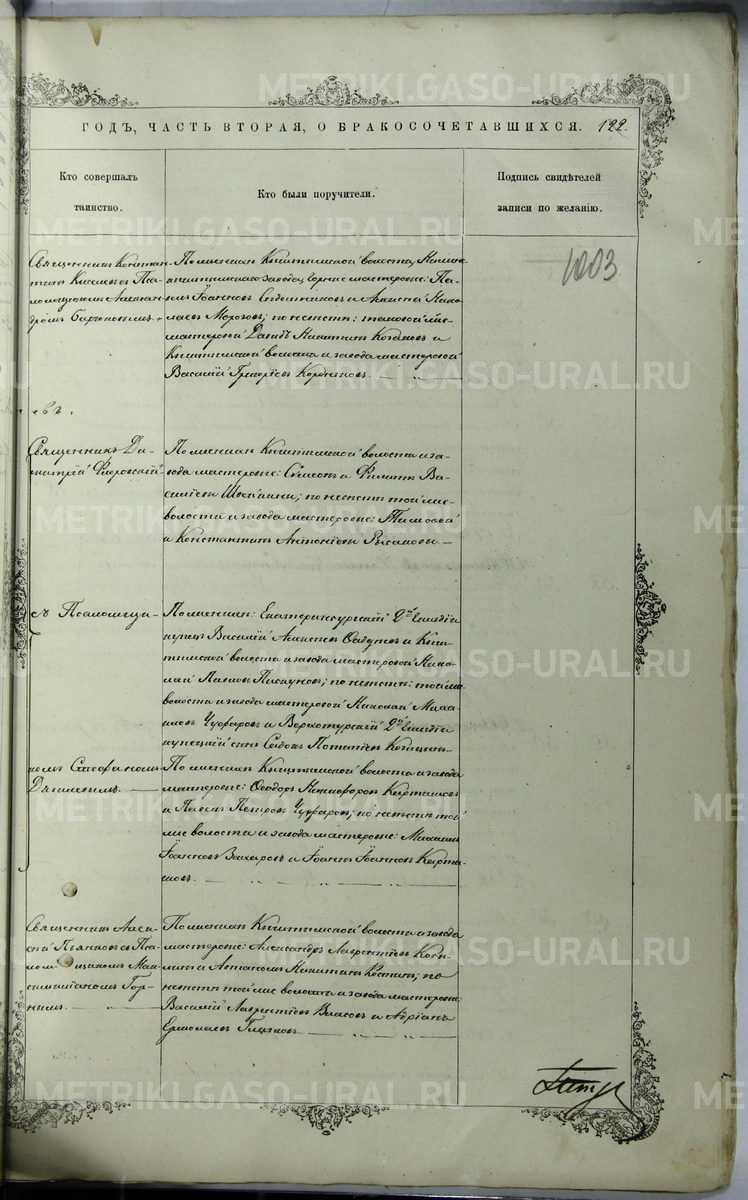 ГОДЪ, ЧАСТЬ ВТОРАЯ, О БРАКОСОЧЕТАВШИХСЯ. 122.
Кто совершалъ
таинство.
Кто были поручители.
Подпись свидѣтелей
записи по желанію.
1003
Священникъ Констан-
тинъ Киселевъ съ Пса-
ломщикомъ Алексан-
дромъ
По женихѣ: Кыштымской волости, Нижне-
кыштымскаго завода, горные мастеровые: Па-
велъ Іоанновъ и Никно-
лаевъ Морозовъ; по невѣстѣ: того же
мастеровой Давидъ Никитинъ Козаковъ и
Кыштымской волости и завода мастеровой
Василій Григоріевъ
Священникъ Ди-
митрій Флоровскій
По женихѣ: Кыштымской волости и за-
вода мастеровые: Симеонъ и Филиппъ Ва-
сильевы Швейкины; по невѣстѣ: той же
волости и завода мастеровые:
и Константинъ Антоніевы
съ Псаломщи-
По женихѣ: Екатеринбургскій 2й гильдіи
купецъ Василій Алексѣевъ и Кыш-
тымской волости и завода мастеровой Нико-
лай Павловъ Пискуновъ; по невѣстѣ: той же
волости и завода мастеровой Николай Миха-
иловъ Чуфаровъ и Верхотурскій 2й гильдіи
купеческій сынъ Потапіевъ
комъ Стефаномъ
По женихѣ: Кыштымской волости и завода
мастеровые: Ѳеодоръ Никифоровъ Карташовъ
и Павелъ Петровъ Чуфаровъ; по невѣстѣ: той
же волости и завода мастеровые: Михаилъ
Іоанновъ Захаровъ и Іоаннъ Іоанновъ Карта-
шовъ.
Священникъ Алек-
сѣй съ Пса-
ломщикомъ Мак-
симиліаномъ Гор-
нымъ
По женихѣ: Кыштымской волости и завода
мастеровые: Александръ Лаврентіевъ
и Никитинъ Костинъ; по
невѣстѣ: той же волости и завода мастеровые:
Василій Лаврентіевъ Власовъ и Адріанъ
Ермолаевъ
METRIKI.GASO-URAL.RU